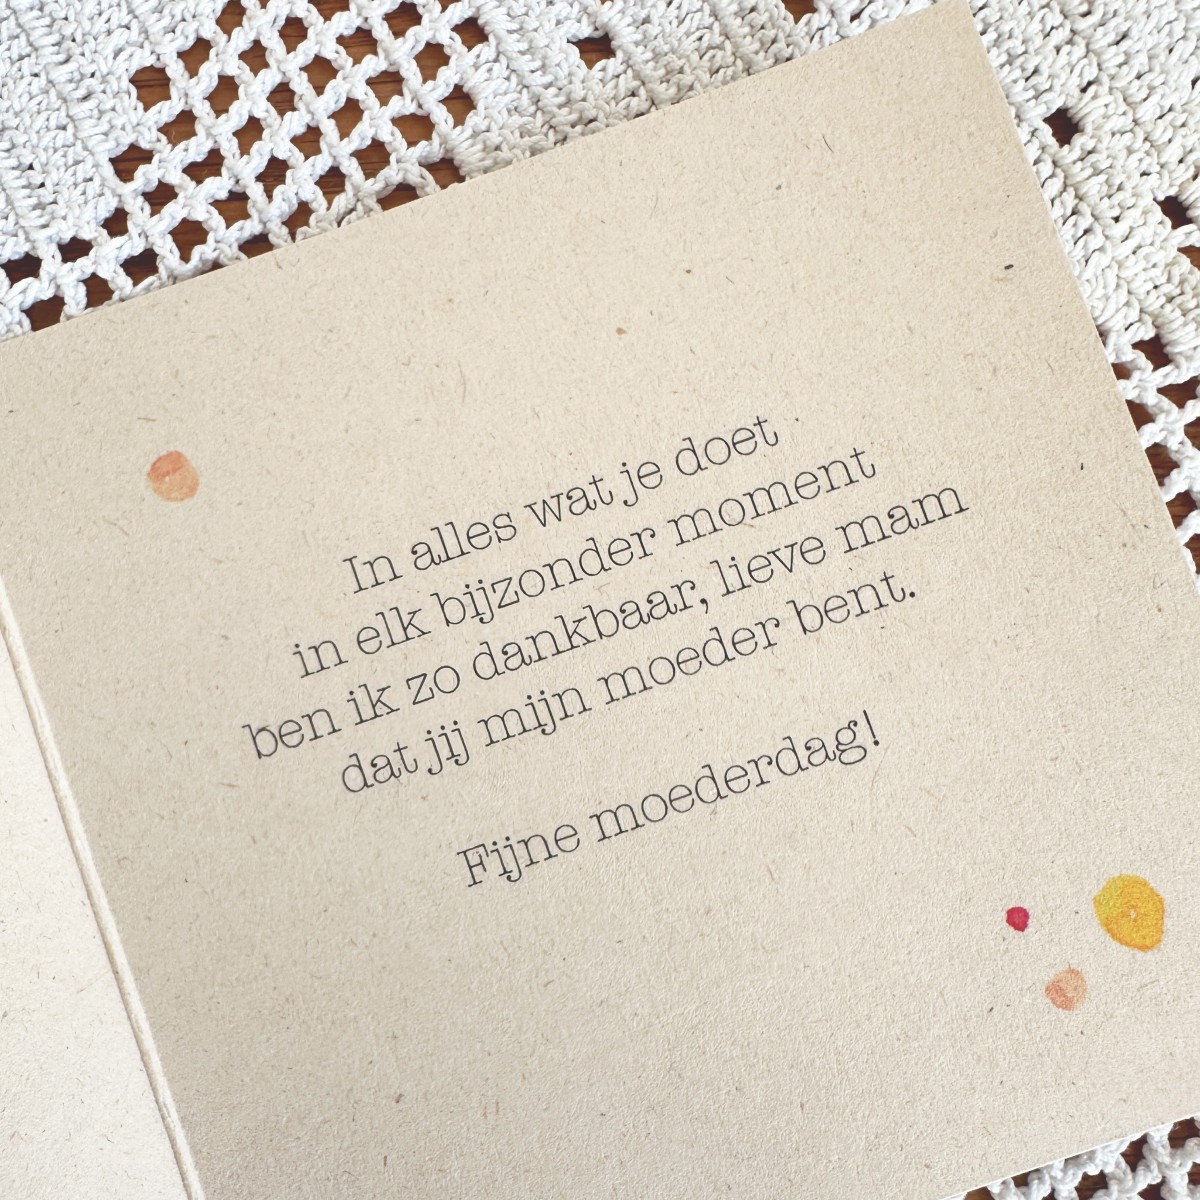 In alles wat je doet
in elk bijzonder moment
ben ik zo dankbaar, lieve mam
dat jij mijn moeder bent.
Fijne moederdag!